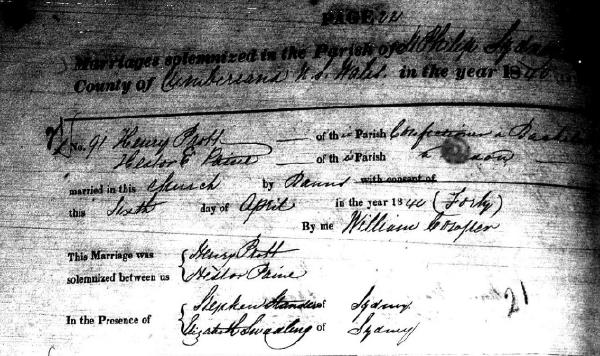 PAGE 22
Marriages solemnized in the Parish of St Philip Sydney
County of Cumberland N. S. Wales. in the year 1840
No. 91 Henry Pratt of this Parish Confectioner a Bachelor
Hester Paine of this Parish a
married in this Church by Banns with consent of
this Sixth day of April in the year 1840 (Forty)
By me William Cowper
This Marriage was solemnized between us
Henry Pratt
Hester Paine
In the Presence of
Stephen of Sydney
Elizabeth Swadling of Sydney
21